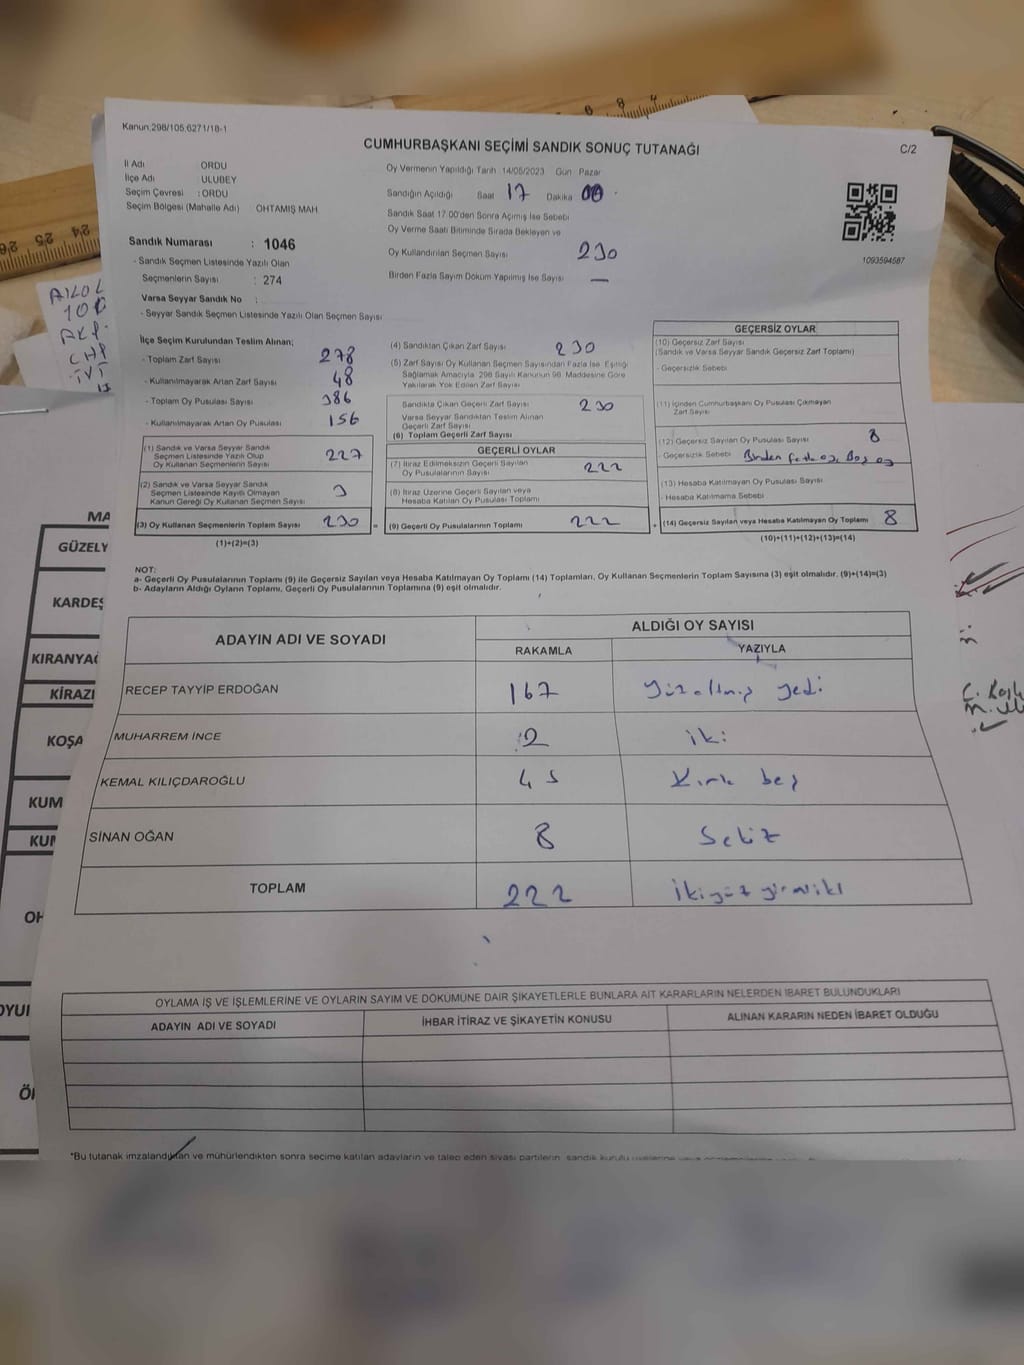 Kanun:298/105,6271/18-1
CUMHURBAŞKANI SEÇİMİ SANDIK SONUÇ TUTANAĞI
C/2
İl Adı ORDU
İlçe Adı ULUBEY
Seçim Çevresi : ORDU
Seçim Bölgesi (Mahalle Adı) OHTAMIŞ MAH
Oy Vermenin Yapıldığı Tarih 14/05/2023 Gün Pazar
Sandığın Açıldığı Saat 17 Dakika 00
Sandık Saat 17.00'den Sonra Açımış İse Sebebi
Oy Verme Saati Bitiminde Sırada Bekleyen ve
Oy Kullandırılan Seçmen Sayısı 230
Birden Fazla Sayım Döküm Yapılmış İse Sayısı —
1093594587
Sandık Numarası : 1046
- Sandık Seçmen Listesinde Yazılı Olan
Seçmenlerin Sayısı : 274
Varsa Seyyar Sandık No :
- Seyyar Sandık Seçmen Listesinde Yazılı Olan Seçmen Sayısı
İlçe Seçim Kurulundan Teslim Alınan;
- Toplam Zarf Sayısı 278
- Kullanılmayarak Artan Zarf Sayısı 48
- Toplam Oy Pusulası Sayısı 386
- Kullanılmayarak Artan Oy Pusulası 156
(1) Sandık ve Varsa Seyyar Sandık
Seçmen Listesinde Yazılı Olup
Oy Kullanan Seçmenlerin Sayısı 227
(2) Sandık ve Varsa Seyyar Sandık
Seçmen Listesinde Kayıtlı Olmayan
Kanun Gereği Oy Kullanan Seçmen Sayısı 3
(3) Oy Kullanan Seçmenlerin Toplam Sayısı 230 =
(1)+(2)=(3)
(4) Sandıktan Çıkan Zarf Sayısı 230
(5) Zarf Sayısı Oy Kullanan Seçmen Sayısından Fazla İse, Eşitliği
Sağlamak Amacıyla 298 Sayılı Kanunun 98. Maddesine Göre
Yakılarak Yok Edilen Zarf Sayısı
Sandıkta Çıkan Geçerli Zarf Sayısı 230
Varsa Seyyar Sandıktan Teslim Alınan
Geçerli Zarf Sayısı
(6) Toplam Geçerli Zarf Sayısı
GEÇERLİ OYLAR
(7) İtiraz Edilmeksizin Geçerli Sayılan
Oy Pusulalarının Sayısı 222
(8) İtiraz Üzerine Geçerli Sayılan veya
Hesaba Katılan Oy Pusulası Toplamı
(9) Geçerli Oy Pusulalarının Toplamı 222 +
GEÇERSİZ OYLAR
(10) Geçersiz Zarf Sayısı
(Sandık ve Varsa Seyyar Sandık Geçersiz Zarf Toplamı)
- Geçersizlik Sebebi
(11) İçinden Cumhurbaşkanı Oy Pusulası Çıkmayan
Zarf Sayısı
(12) Geçersiz Sayılan Oy Pusulası Sayısı 8
- Geçersizlik Sebebi Birden fazla oy, Boş oy
(13) Hesaba Katılmayan Oy Pusulası Sayısı
- Hesaba Katılmama Sebebi
(14) Geçersiz Sayılan veya Hesaba Katılmayan Oy Toplamı 8
(10)+(11)+(12)+(13)=(14)
NOT:
a- Geçerli Oy Pusulalarının Toplamı (9) ile Geçersiz Sayılan veya Hesaba Katılmayan Oy Toplamı (14) Toplamları, Oy Kullanan Seçmenlerin Toplam Sayısına (3) eşit olmalıdır. (9)+(14)=(3)
b- Adayların Aldığı Oyların Toplamı, Geçerli Oy Pusulalarının Toplamına (9) eşit olmalıdır.
ADAYIN ADI VE SOYADI
ALDIĞI OY SAYISI
RAKAMLA YAZIYLA
RECEP TAYYİP ERDOĞAN 167 Yüz altmış yedi
MUHARREM İNCE 2 iki
KEMAL KILIÇDAROĞLU 45 Kırk beş
SİNAN OĞAN 8 Sekiz
TOPLAM 222 İkiyüz yirmiiki
OYLAMA İŞ VE İŞLEMLERİNE VE OYLARIN SAYIM VE DÖKÜMÜNE DAİR ŞİKAYETLERLE BUNLARA AİT KARARLARIN NELERDEN İBARET BULUNDUKLARI
ADAYIN ADI VE SOYADI İHBAR İTİRAZ VE ŞİKAYETİN KONUSU ALINAN KARARIN NEDEN İBARET OLDUĞU
*Bu tutanak imzalandıktan ve mühürlendikten sonra seçime katılan adayların ve talep eden siyasi partilerin, sandık kurulu
MA
GÜZELY
KARDEŞ
KIRANYAĞ
KİRAZI
KOŞA
KUM
KUM
OH
OYUI
ÖI
AKP.
CHP
İYİ